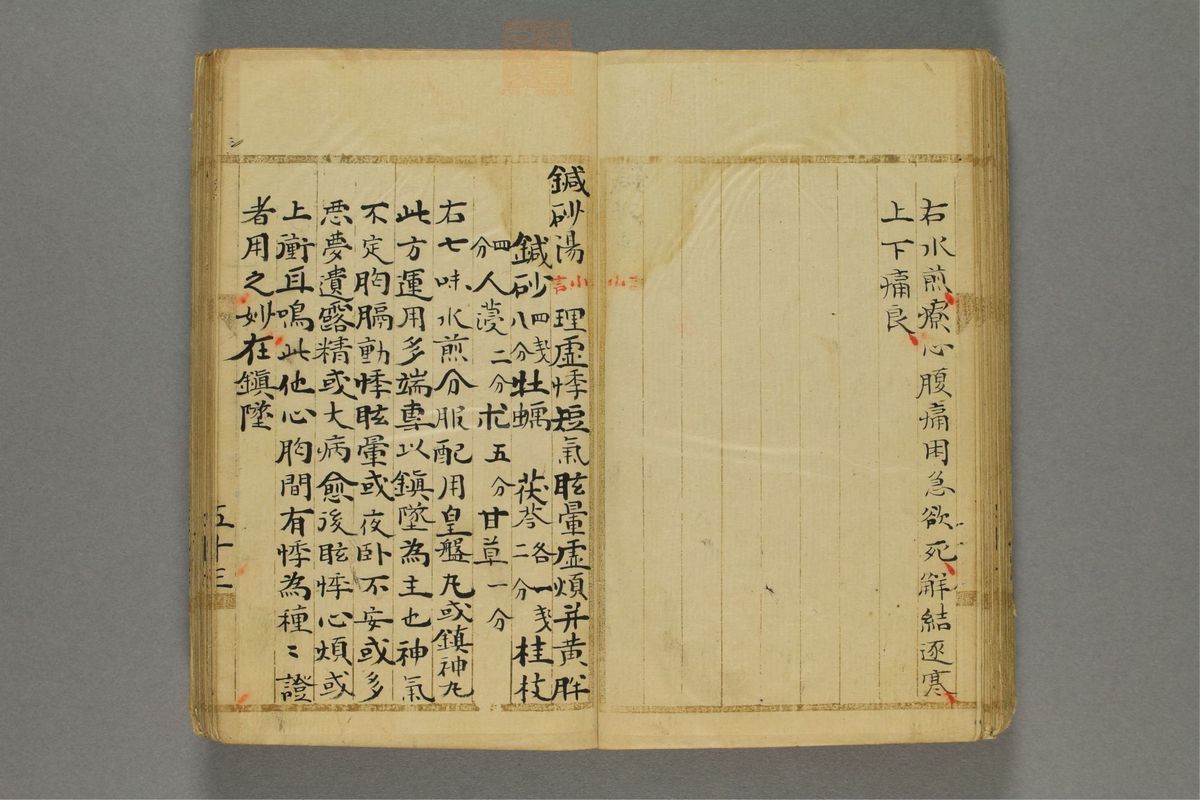 右水煎療心腹痛困急欲死解結逐寒
上下痛良
鍼砂湯 小言 理虛悸短氣眩暈虛煩并黃胖
鍼砂四戔八分牡蠣 茯苓各一戔二分桂枝
四分人蓡二分朮五分甘草一分
右七味水煎分服配用皇盤丸或鎮神丸
此方運用多端專以鎮墜為主也神氣
不定胸膈動悸眩暈或夜卧不安或多
悪夢遺露精或大病愈後眩悸心煩或
上衝耳鳴此他心胸間有悸為種〻證
者用之妙在鎮墜
五十三